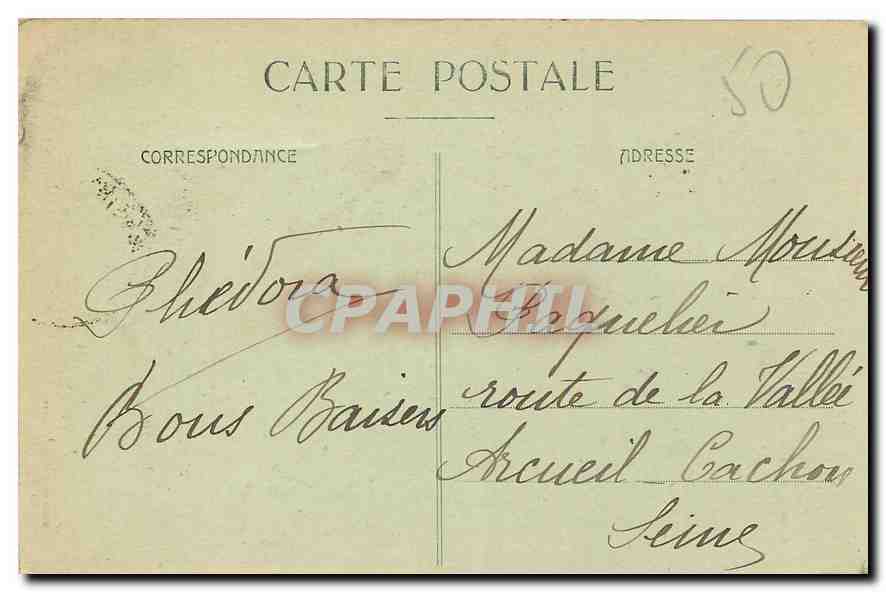 CARTE POSTALE
50
CORRESPONDANCE
ADRESSE
Phédora
Bons Baisers
Madame Monsieur
Paquelier
route de la Vallée
Arcueil Cachan
Seine
CPAPHIL